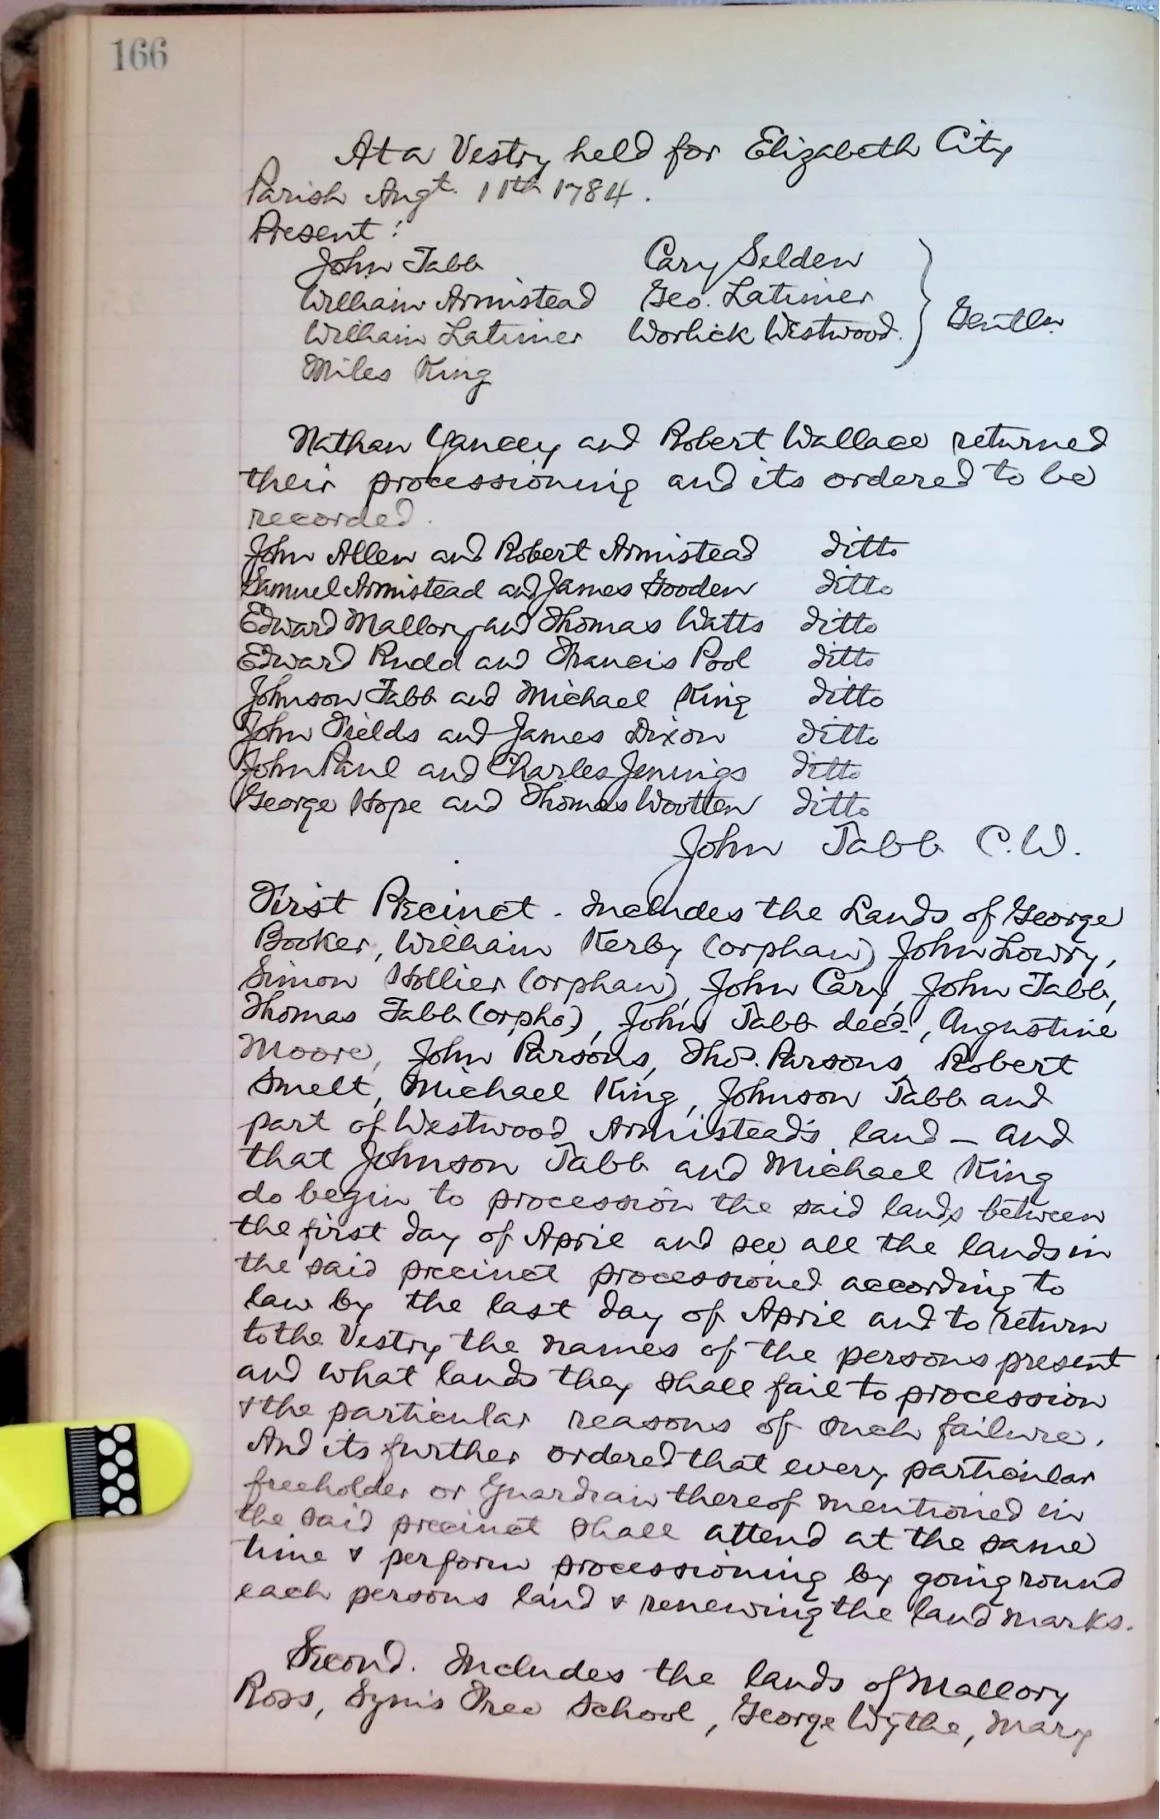 166
At a Vestry held for Elizabeth City
Parish Augt. 11th 1784.
Present:
John Tabb Cary Selden
William Armistead Geo. Latimer
William Latimer Worlick Westwood. } Gentlm.
Miles King
Nathan Yancey and Robert Wallace returned
their processioning and its ordered to be
recorded.
John Allen and Robert Armistead ditto
Samuel Armistead and James Gooden ditto
Edward Mallory and Thomas Watts ditto
Edward Rudd and Francis Pool ditto
Johnson Tabb and Michael King ditto
John Fields and James Dixon ditto
John Paul and Charles Jennings ditto
George Hope and Thomas Wootten ditto
John Tabb C.W.
First Precinct. Includes the Lands of George
Booker, William Kerby (orphan) John Lowry,
Simon Hollier (orphan), John Cary, John Tabb,
Thomas Tabb (orpho), John Tabb decd., Augustine
Moore, John Parsons, Thos. Parsons, Robert
Smelt, Michael King, Johnson Tabb and
part of Westwood Armistead's land — and
that Johnson Tabb and Michael King
do begin to procession the said lands between
the first day of April and see all the lands in
the said precinct processioned according to
law by the last day of April and to return
to the Vestry the names of the persons present
and what lands they shall fail to procession
& the particular reasons of such failure.
And its further ordered that every particular
freeholder or Guardian thereof mentioned in
the said precinct shall attend at the same
time & perform processioning by going round
each persons land & renewing the land marks.
Second. Includes the lands of Mallory
Ross, Syms Free School, George Wythe, Mary